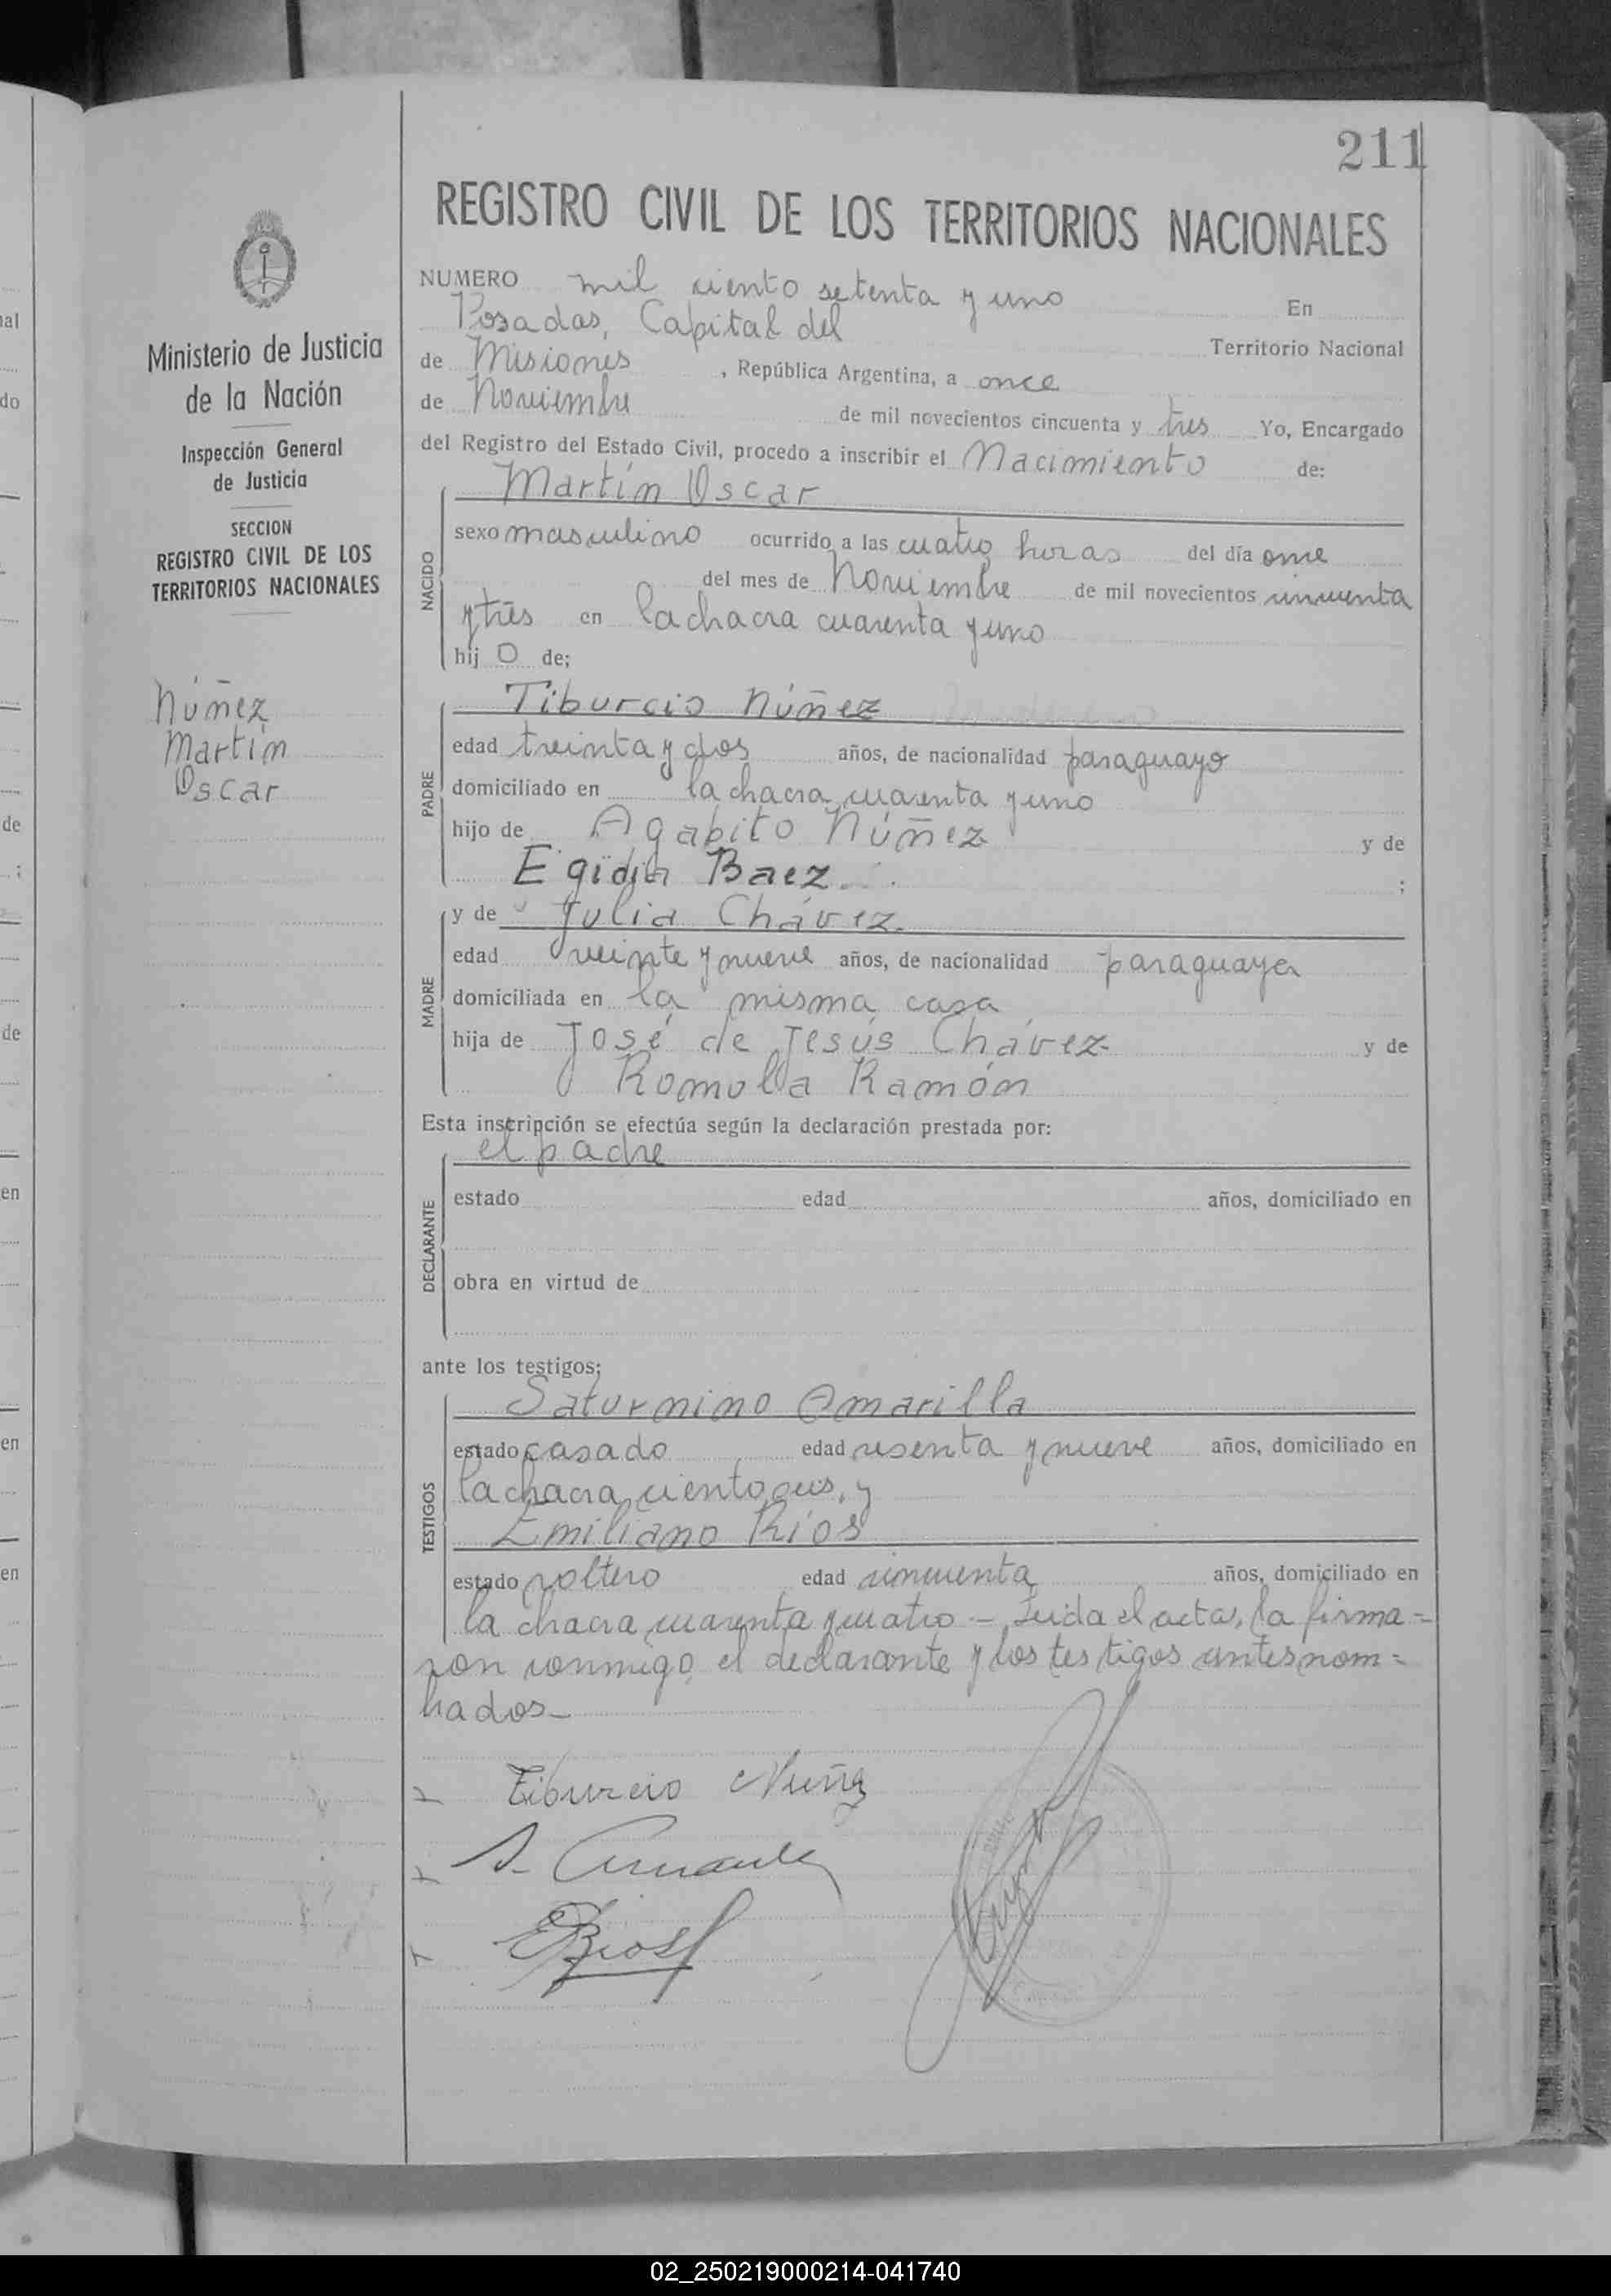 211
REGISTRO CIVIL DE LOS TERRITORIOS NACIONALES
Ministerio de Justicia
de la Nación
Inspección General
de Justicia
SECCION
REGISTRO CIVIL DE LOS
TERRITORIOS NACIONALES
Núñez
Martín
Oscar
NUMERO mil ciento setenta y uno En
Posadas, Capital del Territorio Nacional
de Misiones , República Argentina, a once
de Noviembre de mil novecientos cincuenta y tres Yo, Encargado
del Registro del Estado Civil, procedo a inscribir el Nacimiento de:
NACIDO
Martín Oscar
sexo masculino ocurrido a las cuatro horas del día once
del mes de Noviembre de mil novecientos cincuenta
y tres en la chacra cuarenta y uno
hij o de;
PADRE
Tiburcio Núñez
edad treinta y dos años, de nacionalidad paraguayo
domiciliado en la chacra cuarenta y uno
hijo de Agapito Núñez y de
Egidia Baez ;
MADRE
y de Julia Chávez
edad veinte y nueve años, de nacionalidad paraguaya
domiciliada en la misma casa
hija de José de Jesús Chávez y de
Romula Ramón
Esta inscripción se efectúa según la declaración prestada por:
DECLARANTE
el padre
estado edad años, domiciliado en
obra en virtud de
ante los testigos;
TESTIGOS
Saturnino Amarilla
estado casado edad sesenta y nueve años, domiciliado en
la chacra ciento seis, y
Emiliano Ríos
estado soltero edad cincuenta años, domiciliado en
la chacra cuarenta y cuatro - Leida el acta, la firma=
ron conmigo el declarante y los testigos antes nom=
brados-
Tiburcio Nuñez
S. Amarilla
ERios
02_250219000214-041740